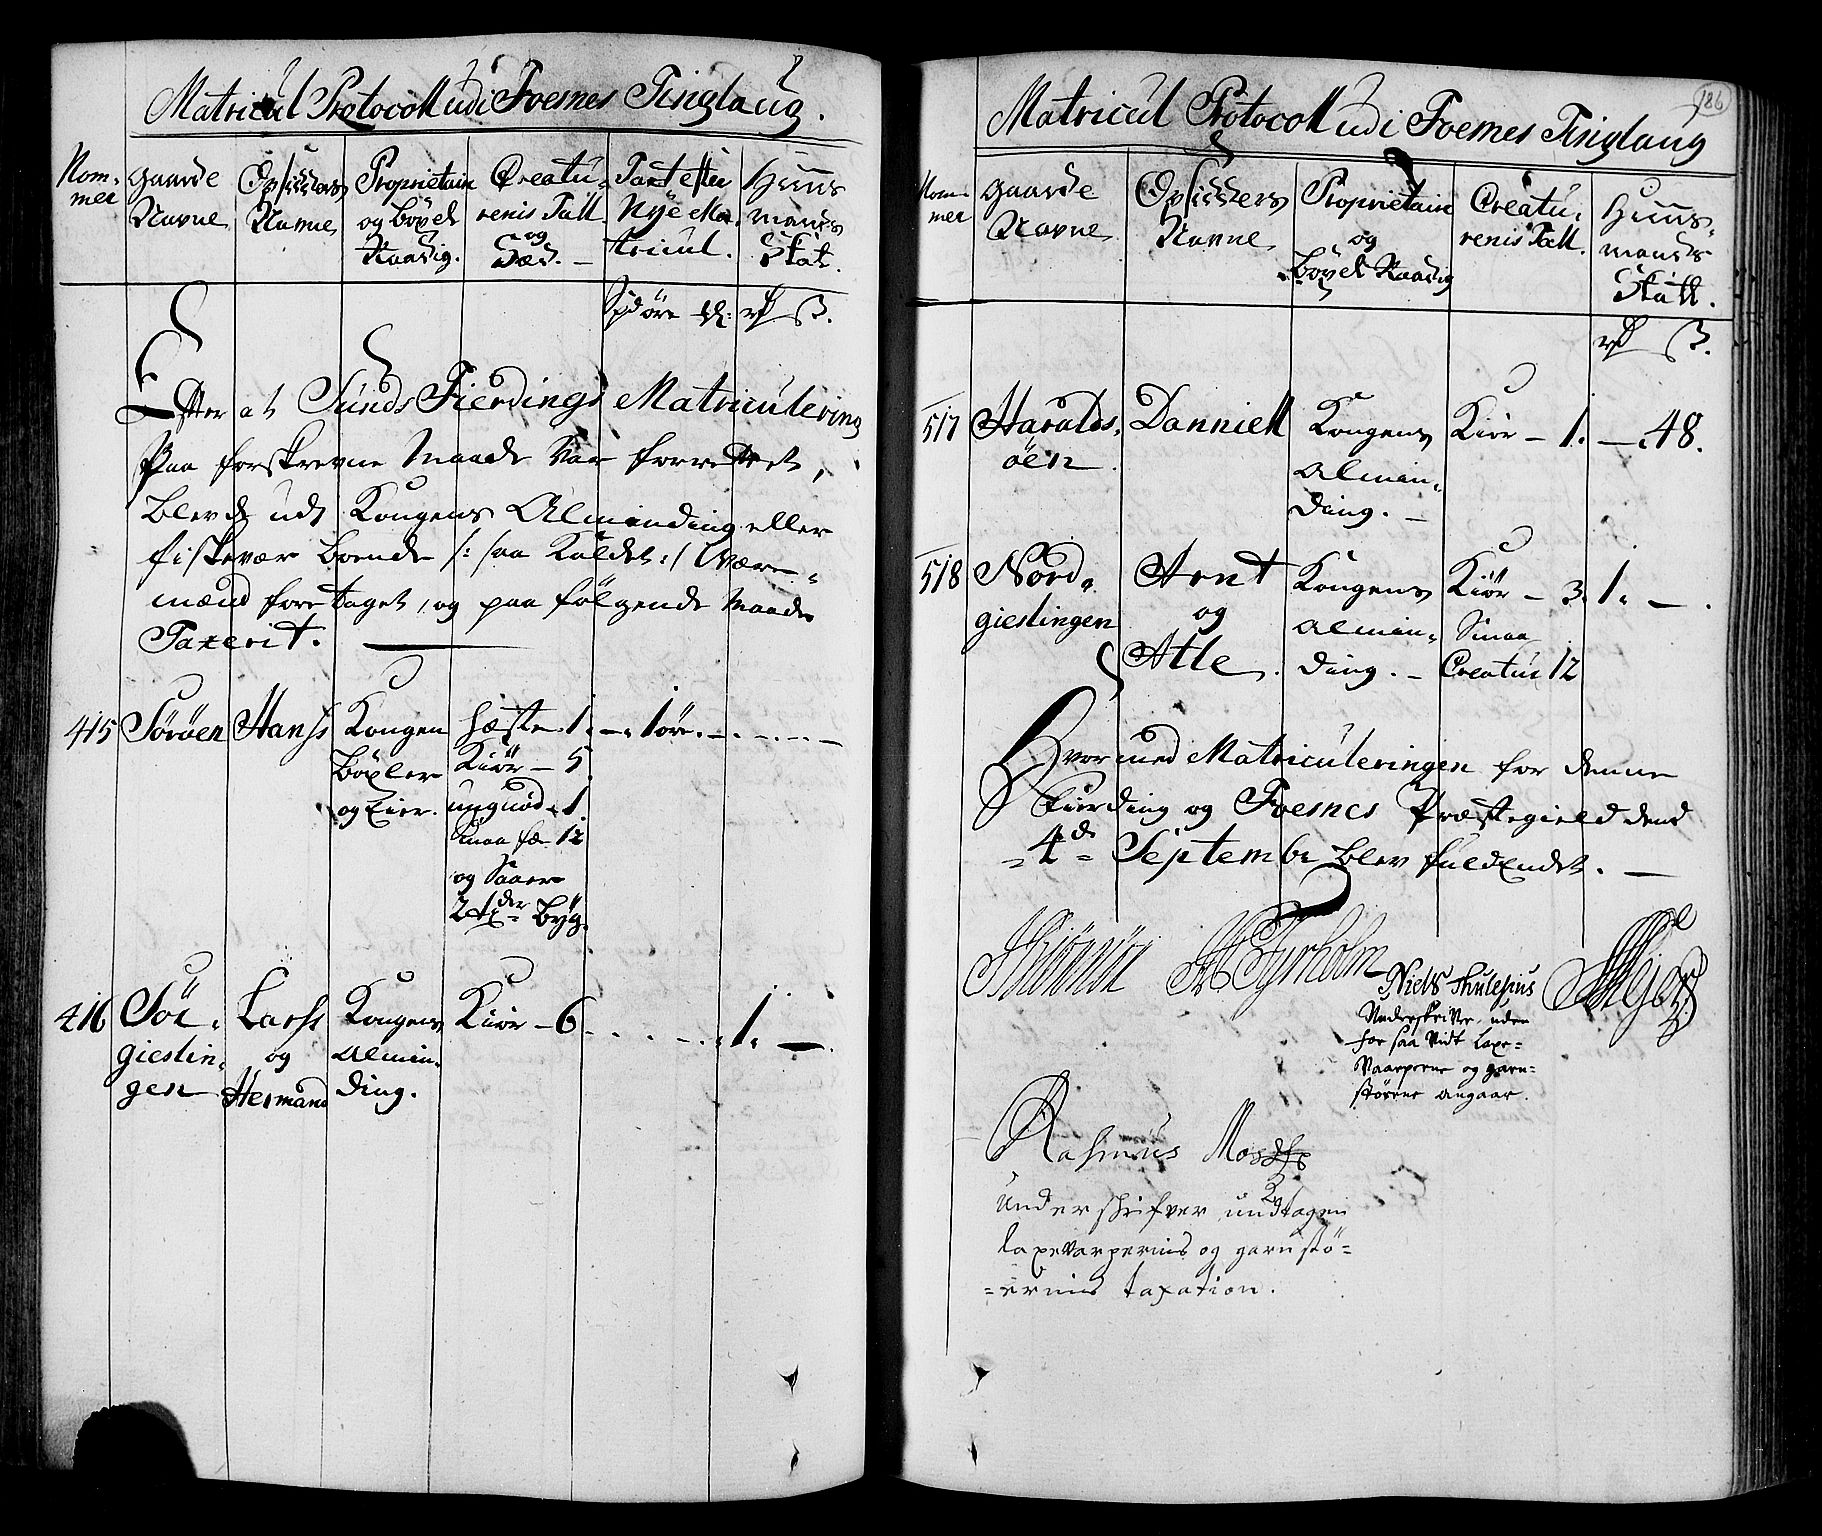 Matricul Protocoll udi Foesnes Tinglaug.
Nom-
mer
Gaarde
Navne
Opsidders
Navne
Proprietair
og böxel
Raadig.
Creatu-
renis Tall
og
Sæd. -
Taxt efter
Nÿe Ma-
tricul.
Huus
mands
Skat.
Spd öre rd ß.
Efter at Sunds Fierdings Matriculering
Paa forskrevne Maade var forrettet,
blev de udi Kongens Alminding eller
fiskevær boende /: saa Kaldet :/ Være-
mænd foretaget, og paa følgende Maade
Taxerit.
415 Söröen Hanss Kongen
Böxler
og Eier.
hæste 1. - 1 öre. - - - - -
Kiör - 5
ungnöd - 1
Smaa fæ - 12
og Saaer
2 der Bÿg.
416 Sör-
giestin-
gen
Larss
og
Hermand
Kongens
Almin-
ding.
Kiör - 6 - - - - - 1. -
186
Matricul Protocoll udi Foesnes Tinglaug
Nom-
mer
Gaarde
Navne
Opsidders
Navne
Proprietair
og
böxel Raadig
Creatu-
renis Tall.
Huus-
mands
Skatt.
rd ß.
517 Haralds-
öen
Danniell Kongens
Almin-
ding. -
Kiör - 1. - 48.
518 Nord-
giestingen
Arnt
og
Atle.
Kongens
Almin-
ding. -
Kiör - 3.
Smaa
Creatur 12
1. - .
Hvormed Matriculeringen for denne
Fierding og Foesnes Præstegield dend
- 4de - Septembr blev fuldendet. -
Niels Thulesius
Underskriver, uden
for saa vidt Laxe-
Vaarperne og garn-
störene angaar.
Rasmus
Underskrifver undtagen
laxevarpernis og garnstö-
-ernis taxation.